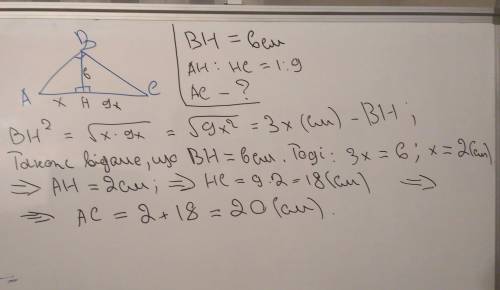 B
6
A x H 9x C
BH = 6см
AH : HC = 1:9
AC - ?
BH² = √x·9x = √9x² = 3x (см) - BH ;
Також відаме, що BH = 6см. Тоді : 3x = 6 ; x = 2(см)
⇒ AH = 2см ; ⇒ HC = 9·2 = 18(см) ⇒
⇒ AC = 2 + 18 = 20 (см).